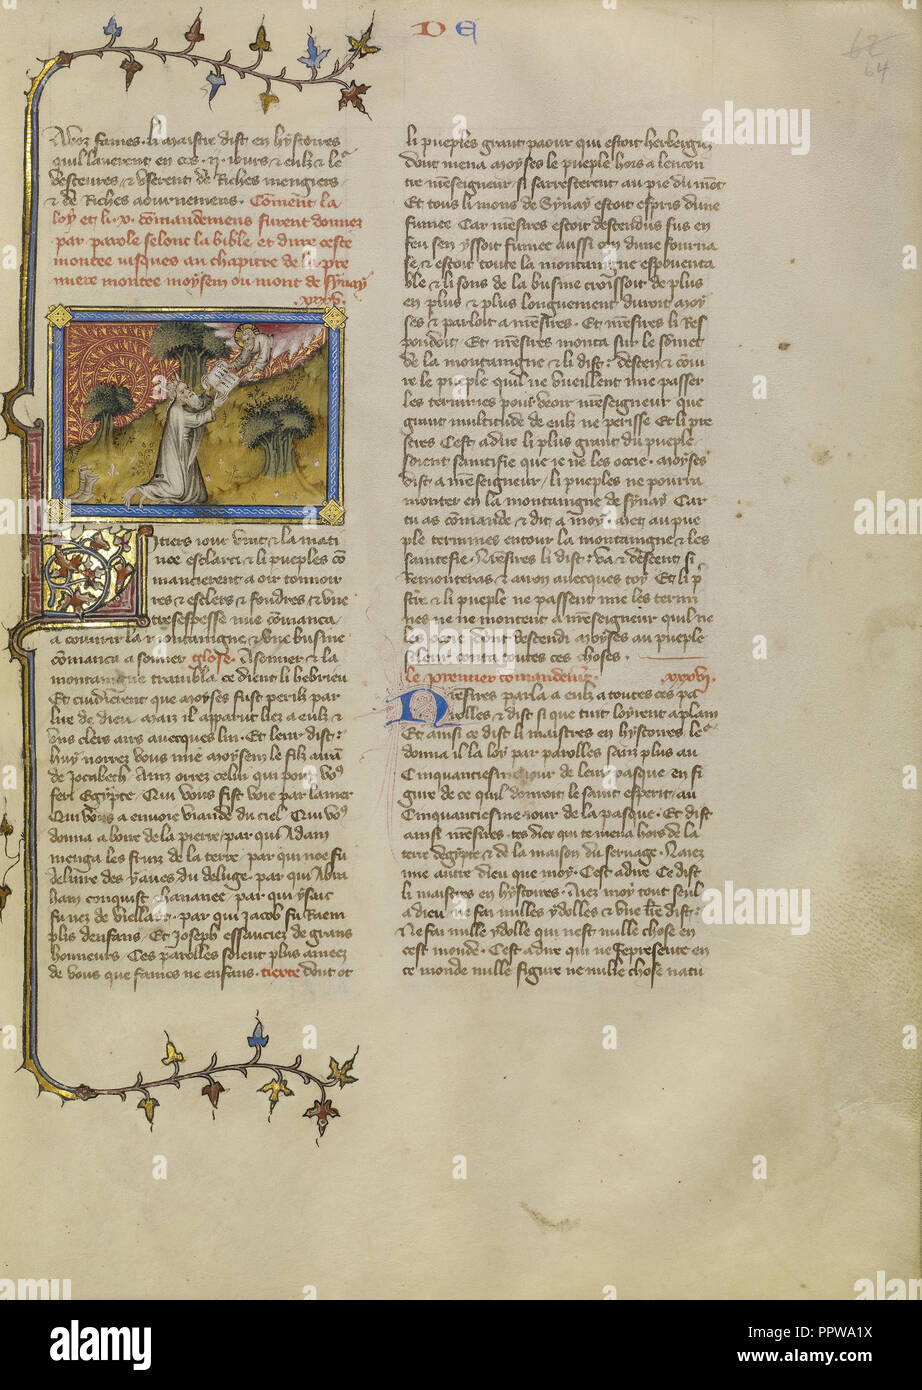 DE
62
64
Avoz fames. li maistre dist en hystoires
quil laverent en ces .ii. iours & eulz & le
vesteures. & userent de Riches mengiers
& de Riches aournemens. Coment la
loy et li .x. comandemens furent donnez
par parole selonc la bible et dure ceste
montee iusques au chapitre de la pre
miere montee moysem ou mont de synay
.xxxv.
tiers iour vint & la mati
nee esclarci & li pueples co
mancierent a oir tonnoir
res & esclers & foudres & une
tresespesse nue comanca
a couvrir la montaingne & une busine
comanca a sonner glose. A sonner & la
montaingne trambla ce dient li hebrieu
Et cuidierent que moyses fust periz par
lui de dieu. maiz il apparut liez a eulz &
uns clers airs avecques lui. Et leur dist:
huy norrez vous mie moysem le filz
de Jocabeth. Ainz orrez celui qui pour vos
feri Egypte. Qui vous fist voie par la mer
Qui vous a envoie viande du ciel. Qui vos
donna a boire de la pierre. par qui Adam
menga les fruiz de la terre. par qui noe fu
delivre des yaues du deluge. par qui Abra
ham conquist chananee. par qui ysaac
fu nez de viellart. par qui Jacob fu Raem
plis denfans. Et Joseph essauciez de grans
honneurs. Ces paroles soient plus amees
de vous que fames ne enfans. tiexte dont ot
li pueples grant paour qui estoit herbergiez
dont mena moyses le pueple hors a lencon
tre meseigneur si sarresterent au pie du mont
Et tous li mons de Synay estoit espris dune
fumee Car mesires estoit descendus sus en
feu sen yssoit fumee aussi com dune fourna
se. & estoit toute la montaingne espoventa
ble & li sons de la busine croissoit de plus
en plus & plus longuement duroit moy
ses & parloit a mesires. Et mesires li Res
pondoit Et mesires monta sur le somet
de la montaingne & li dist: descen & com
re le pueple quil ne vueillent mie passer
les termines pour veoir meseigneur que
grant multitude de eulz ne perisse Et li pre
stres Cest a dire li plus grant du pueple
soient saintifie que je ne les occie. moyses
dist a meseigneur. li pueples ne pourra
monter en la montaingne de synay Car
tu as comande & dit a moy. metz au pue
ple termines entour la montaingne & les
saintefie. Mesires li dist: va & descent si
Remonteras & aaron avecques toy Et li p
stre & li pueple ne passent mie les termi
nes ne ne montent a meseigneur quil ne
les occie dont descendi moyses au pueple
si leur conta toutes ces choses.
le premier comandemt. .xxxvi.
Mesires parla a eulz a toutes ces pa
rolles & dist si que tuit loyrent a plain
Et ainsi ce dist li maistres en hystoires le
donna il la loy par parolles sanz plus au
Cinquantiesme jour de leur pasque en fi
gure de ce quil donroit le saint esperit. au
Cinquantiesme iour de la pasque. Et dist
ainsi mesires. tes dier qui te mena hors de la
terre degypte & de la maison du servage. Naiez
mie autre dieu que moy. Cest a dire Ce dist
li maistres en hystoires. Aiez moy tout seul
a dieu. ne fai nulles ydolles & une dist:
Ne fai nulle ydolle qui nest nulle chose en
cest monde. Cest a dire qui ne Represente en
ce monde nulle figure ne nulle chose natu
alamy
Image ID: PPWA1X
www.alamy.com